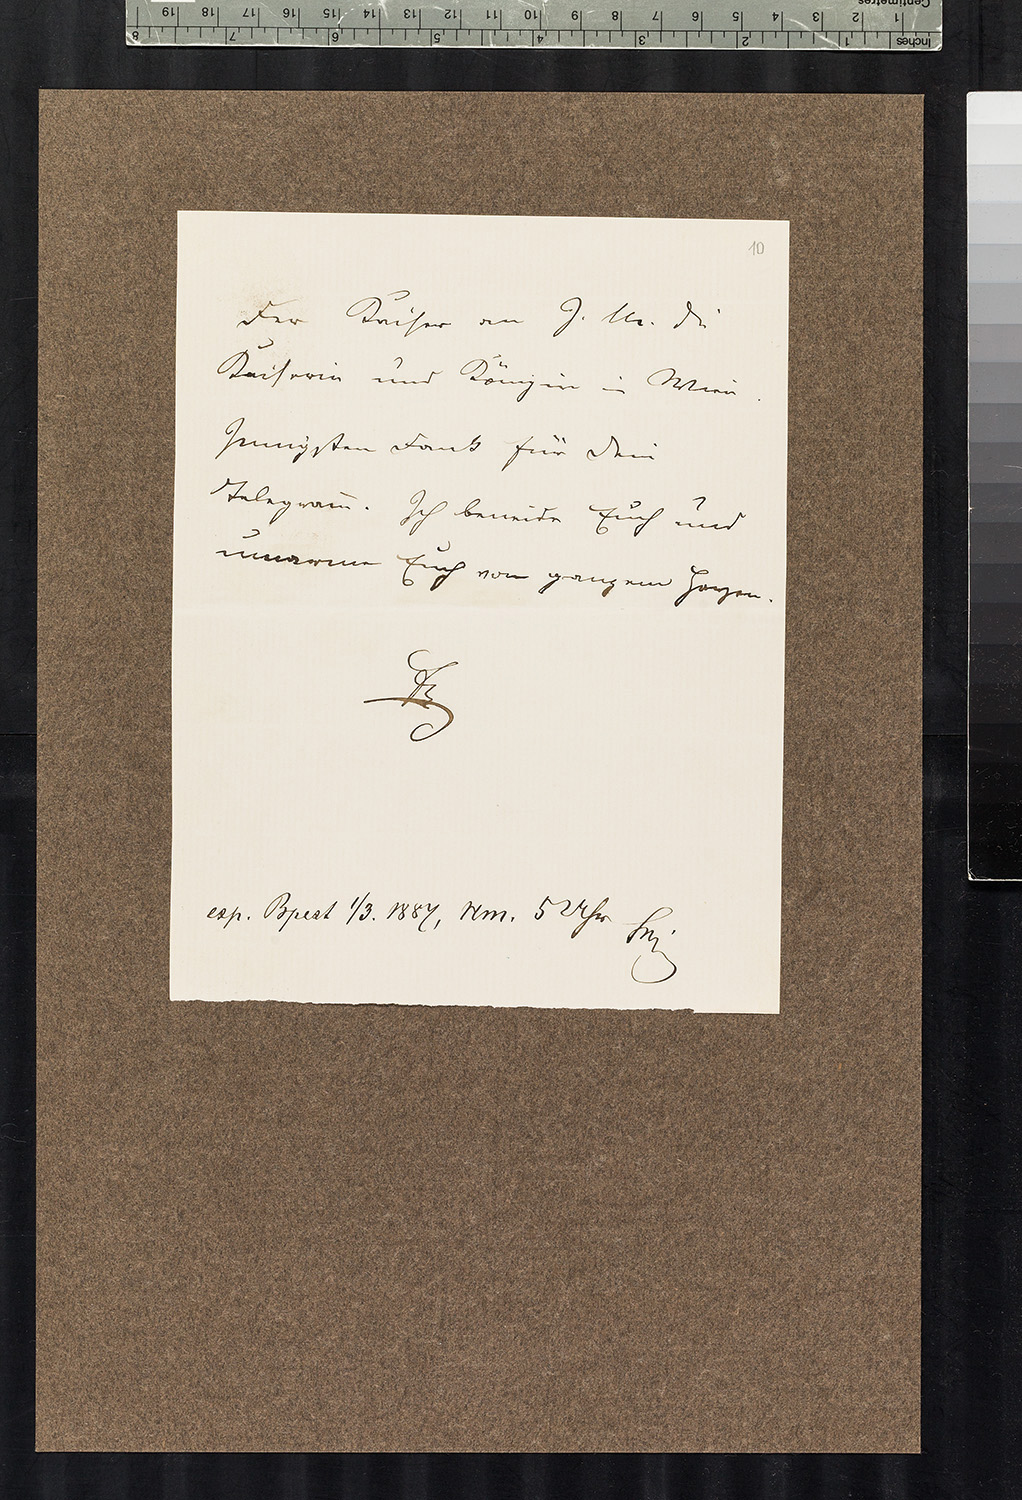 10
Der Kaiser an J. M. die
Kaiserin und Königin in Wien.
Innigsten Dank für Dein
Telegram̅. Ich beneide Euch und
umarme Euch von ganzem Herzen.
exp. Bpest 1/3. 1887, Nm. 5 Uhr
Centimetres
1 2 3 4 5 6 7 8 9 10 11 12 13 14 15 16 17 18 19
Inches
1 2 3 4 5 6 7 8